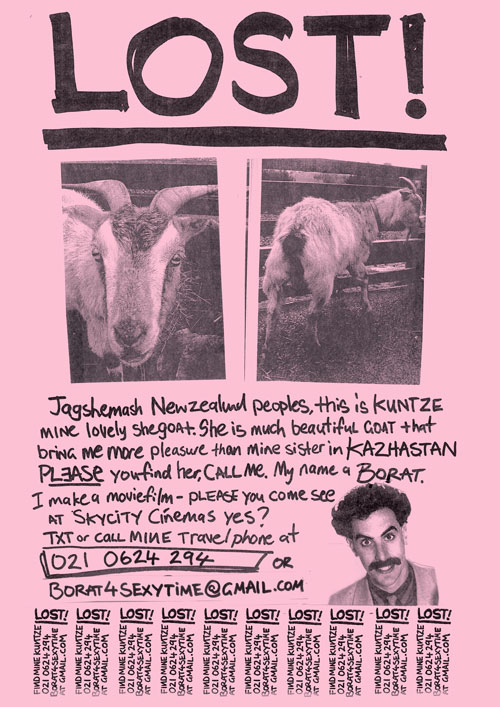 LOST!
Jagshemash Newzealund peoples, this is KUNTZE
MINE lovely shegoat. She is much beautiful GOAT that
bring me more pleasure than mine sister in KAZHASTAN
PLEASE you find her, CALL ME. My name a BORAT.
I make a moviefilm - PLEASE you come see
AT SKYCITY Cinemas yes?
TXT or CALL MINE Travel phone at
021 0624 294 OR
BORAT4SEXYTIME@GMAIL.COM
LOST! LOST! LOST! LOST! LOST! LOST! LOST! LOST! LOST! LOST!
FIND MINE KUNTZE
021 0624 294
BORAT4SEXYTIME
AT GMAIL.COM
FIND MINE KUNTZE
021 0624 294
BORAT4SEXYTIME
AT GMAIL.COM
FIND MINE KUNTZE
021 0624 294
BORAT4SEXYTIME
AT GMAIL.COM
FIND MINE KUNTZE
021 0624 294
BORAT4SEXYTIME
AT GMAIL.COM
FIND MINE KUNTZE
021 0624 294
BORAT4SEXYTIME
AT GMAIL.COM
FIND MINE KUNTZE
021 0624 294
BORAT4SEXYTIME
AT GMAIL.COM
FIND MINE KUNTZE
021 0624 294
BORAT4SEXYTIME
AT GMAIL.COM
FIND MINE KUNTZE
021 0624 294
BORAT4SEXYTIME
AT GMAIL.COM
FIND MINE KUNTZE
021 0624 294
BORAT4SEXYTIME
AT GMAIL.COM
FIND MINE KUNTZE
021 0624 294
BORAT4SEXYTIME
AT GMAIL.COM